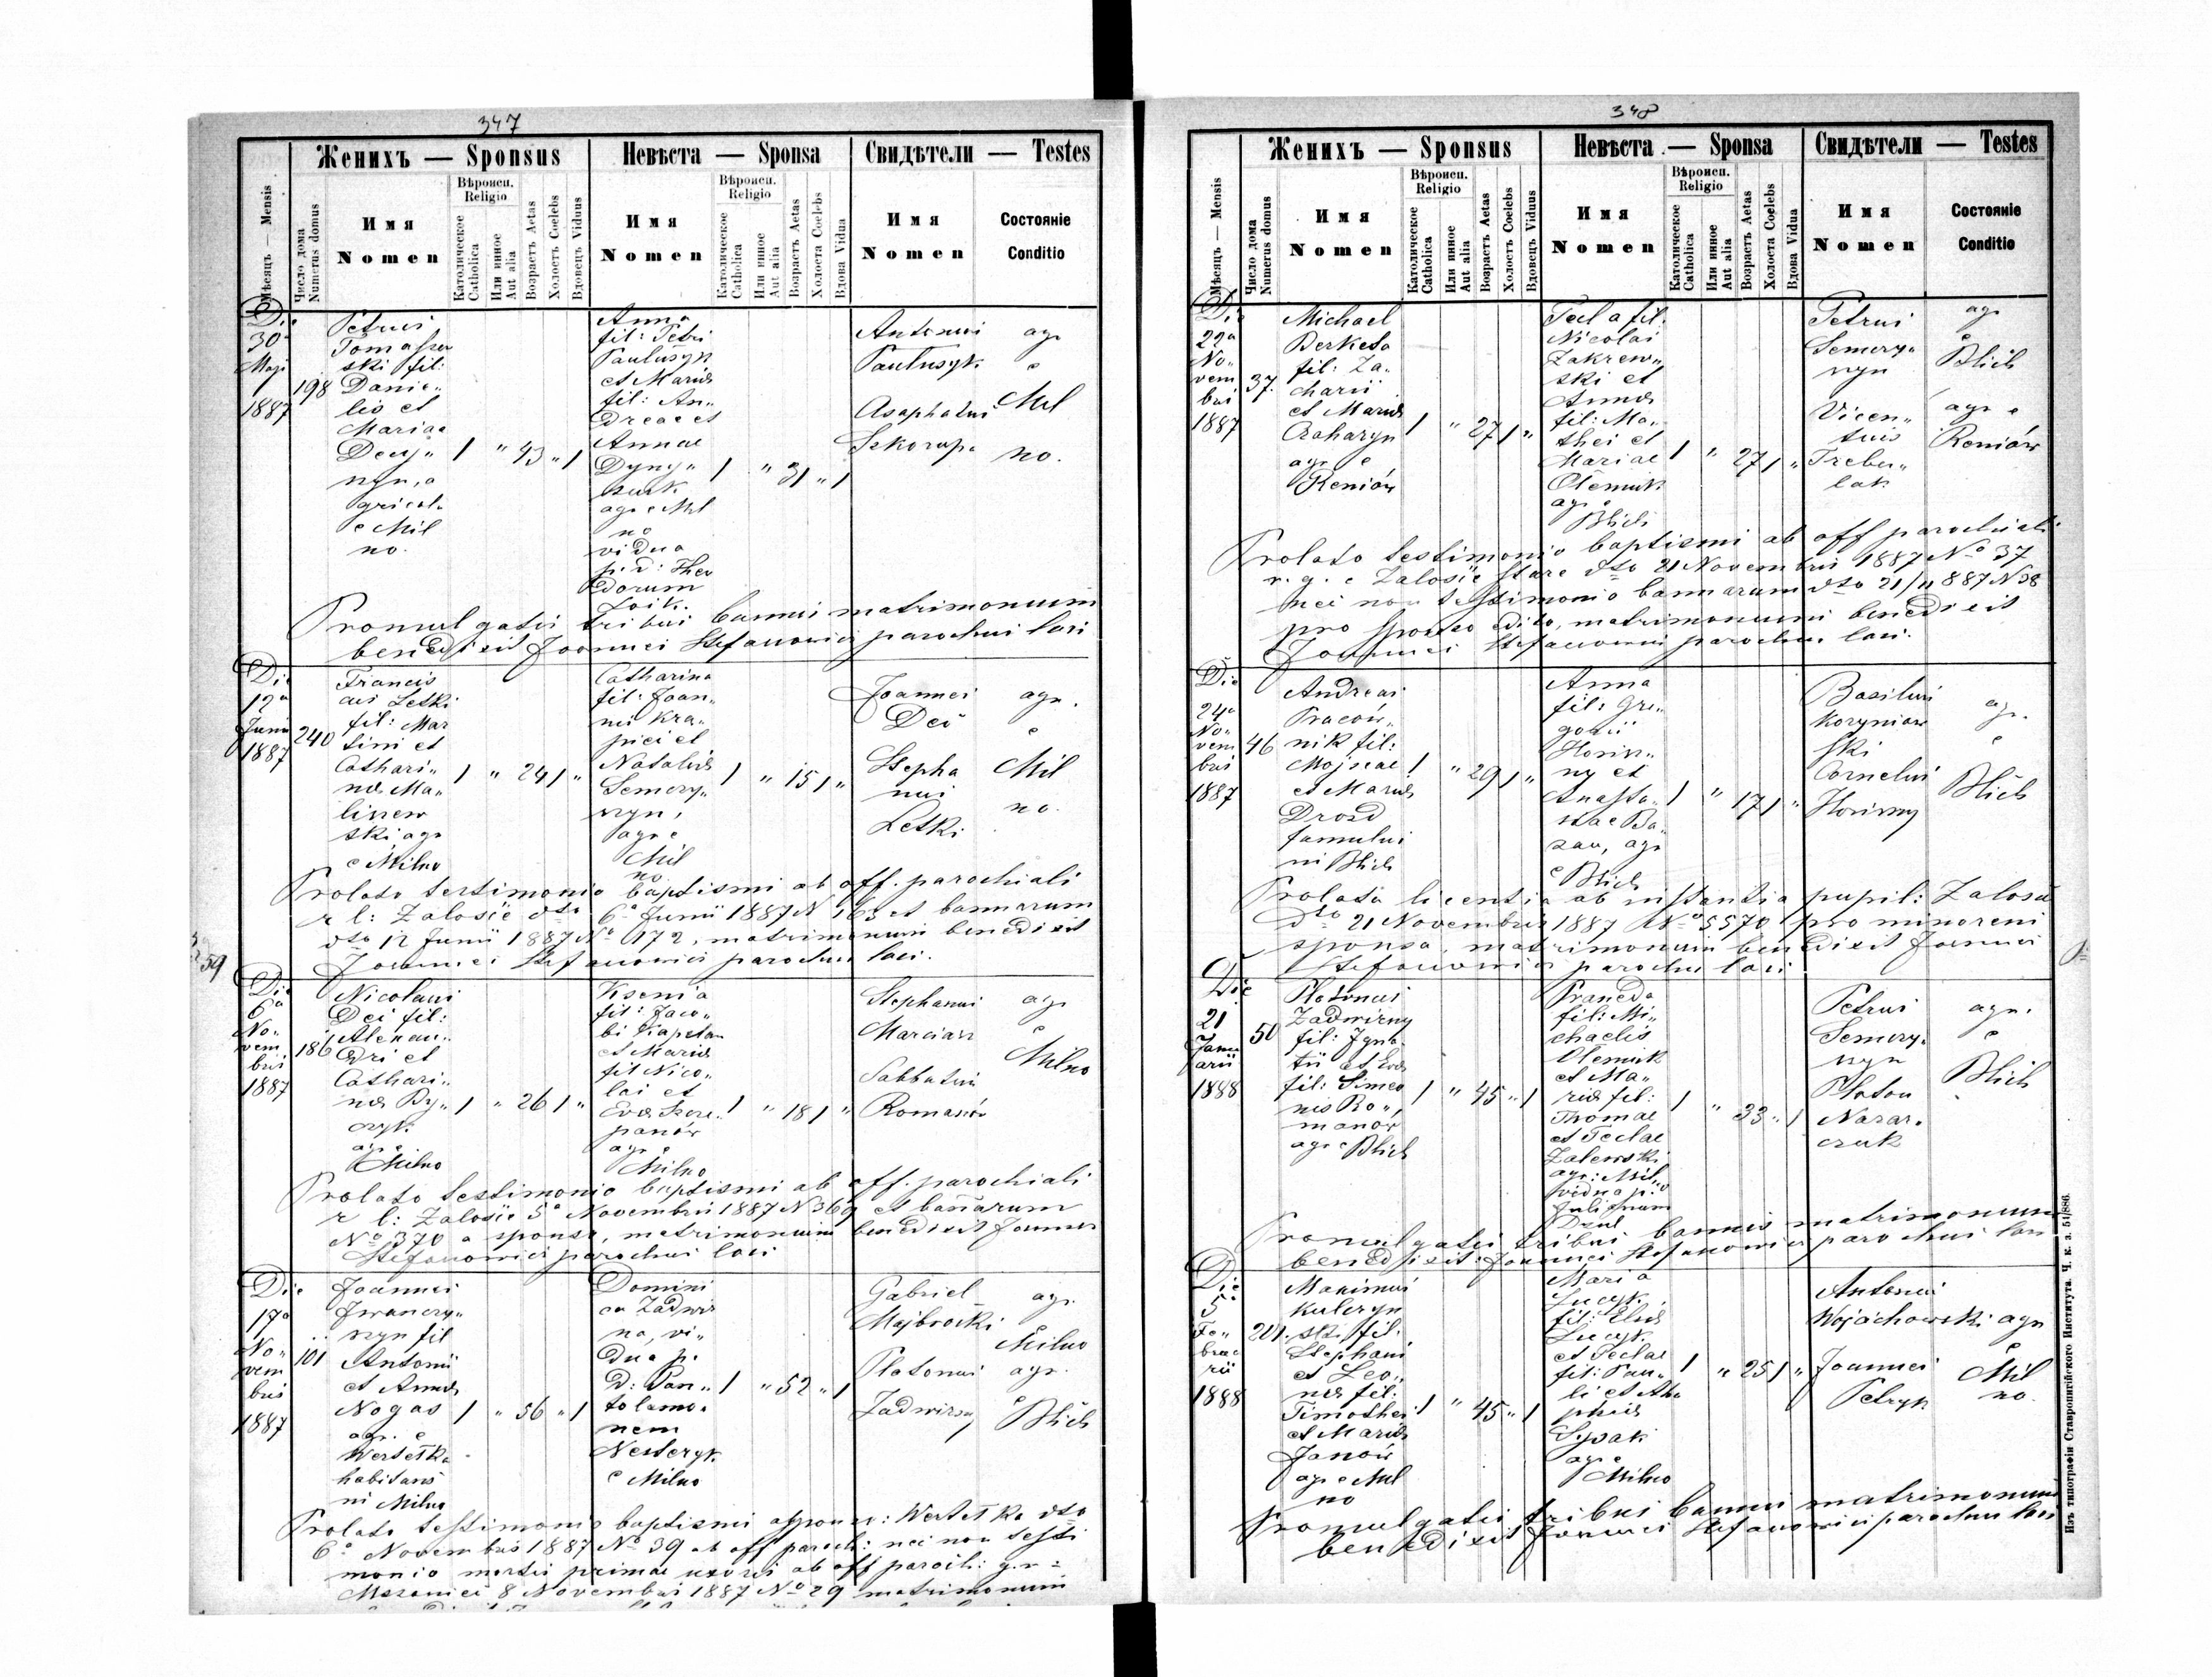 347
Женихъ — Sponsus
Невѣста — Sponsa
Свидѣтели — Testes
Мѣсяцъ — Mensis
Число дома
Numerus domus
Имя
Nomen
Вѣроисп.
Religio
Католическое
Catholica
Или инное
Aut alia
Возрастъ Aetas
Холостъ Coelebs
Вдовецъ Viduus
Имя
Nomen
Вѣроисп.
Religio
Католическое
Catholica
Или инное
Aut alia
Возрастъ Aetas
Холоста Coelebs
Вдова Vidua
Имя
Nomen
Состоянiе
Conditio
Die
30
Maji
1887
198
Petrus
Tomaszew
ski fil:
Danie„
lis et
Mariae
no.
1 " 43 " 1
Anna
fil: Petri
et Mariæ
fil: An„
dreae et
Annae
no
vidua
p. d: Theo
dorum
1 " 31 " 1
Antonius
Asaphatus
agr
e
Mil
no.
Promulgatis tribus bannis matrimonium
benedixit Joannes Stefanowicz parochus loci
Die
12a
Junii
1887
240
Francis
cus Letki
fil: Mar
tini et
Cathari„
næ Ma„
ski agr
e Milno
1 " 24 1 "
Catharina
fil: Joan„
nis Kra„
pici et
Nataliæ
Semczy„
szyn,
agr e
Mil
no
1 " 15 1 "
Joannes
Dei
Stepha
nus
Letki
agr.
e
Mil
no.
Prolato testimonio baptismi ab off. parochiali
r l: Zalosie dto 6a Junii 1887 N 163 et bannarum
dto 12 Junii 1887 No 172, matrimonium benedixit
Joannes Stefanowicz parochus loci.
59
Die
6a
No„
vem
bris
1887
186
Nicolaus
Dei fil:
Alexan„
dri et
Cathari„
næ By„
czyk
agr e
Milno
1 " 26 1 "
Ksenia
fil: Jaco„
bi Kapstan
et Mariæ
fil Nico„
lai et
Evæ Szcze
panów
agr e
Milno
1 " 18 1 "
Stephanus
Marciasz
Sabbatius
Romanów
agr
e
Milno
Prolato testimonio baptismi ab off. parochiali
r l: Zalosie 5a Novembris 1887 N 369 et bannarum
No 370 a sponso, matrimonium benedixit Joannes
Stefanowicz parochus loci
Die
17a
No„
vem
bris
1887
101
Joannes
Iwanczy„
szyn fil
Antonii
et Annæ
Nogas
agr. e
Wertelka
habitans
in Milno
1 " 56 " 1
Domini
ca Zadwir
na, vi„
dua p.
d: Pan„
talemo„
nem
Nesteryk
e Milno
1 " 52 " 1
Gabriel
Majbrocki
Platonus
Zadwirny
agr.
e
Milno
agr.
e
Blich
Prolato testimonio baptismi a sponso: Wertelka dto
6a Novembris 1887 No 39 ab off paroch: nec non testi
monio mortis primae uxoris ab off paroch: g. r.
8 Novembris 1887 No 29 matrimonium
348
Женихъ — Sponsus
Невѣста — Sponsa
Свидѣтели — Testes
Мѣсяцъ — Mensis
Число дома
Numerus domus
Имя
Nomen
Вѣроисп.
Religio
Католическое
Catholica
Или инное
Aut alia
Возрастъ Aetas
Холостъ Coelebs
Вдовецъ Viduus
Имя
Nomen
Вѣроисп.
Religio
Католическое
Catholica
Или инное
Aut alia
Возрастъ Aetas
Холоста Coelebs
Вдова Vidua
Имя
Nomen
Состоянiе
Conditio
Die
22a
No„
vem
bris
1887
37.
Michael
Berketa
fil: Za„
charii
et Mariæ
Czaharyn
agr e
Reniów
1 " 27 1 "
Tecla fil.
Nicolai
Zakrew„
ski et
Annæ
fil: Ma„
thei et
Mariae
agr e
Blich
1 " 27 1 "
Petrus
Semczy„
szyn
Vicen„
tius
Trebu„
lak
agr
e
Blich
agr e
Reniów
Prolato testimonio baptismi ab off parochiali
r. g. e Zalosie Stare dto 21 Novembris 1887 No 37
nec non testimonio bannarum dto 21/11 887 N 38
pro sponso edito, matrimonium benedixit
Joannes Stefanowicz parochus loci.
Die
24a
No„
vem
bris
1887
46
Andreas
Praców„
nik fil:
Mojseae
et Mariæ
Drozd
famulus
in Blich
1 " 29 1 "
Anna
fil: Gre„
gorii
Horiw„
ny et
Anasta„
siae Ba„
ran, agr
e Blich
1 " 17 1 "
Basilius
Koryniow
ski
Cornelius
Horiwny
agr.
e
Blich
Prolata licentia ab instantia pupil: Zalosie
dto 21 Novembris 1887 No 5570 pro minoreni
sponsa, matrimonium benedixit Joannes
Stefanowicz parochus loci
Die
21
Janu
arii
1888
50
Platonus
Zadwirny
fil: Igna
tii et Evæ
fil: Simeo
nis Ro„
manów
agr e Blich
1 " 45 " 1
fil: Mi„
chaelis
et Ma„
riæ fil:
Thomae
et Teclae
Zalewski
vidua p. d
1 " 33 " 1
Petrus
Semczy„
szyn
Platon
Nazar„
czuk
agr.
e
Blich
Promulgatis tribus bannis matrimonium
benedixit: Joannes Stefanowicz parochus loci
Die
5a
Fe„
brua
rii
1888
201.
Maximus
Kulczyn
ski fil.
Stephani
et Leo„
næ fil:
Timothei
et Mariæ
Janów
agr e Mil
no
1 " 45 " 1
Maria
fil: Eliæ
et Teclae
fil: Pau„
li et Aha
phiæ
Spak
agr e
Milno
1 " 25 1 "
Antonius
Wojachowski
Joannes
Petryk
agr
e
Mil
no.
Promulgatis tribus bannis matrimonium
benedixit Joannes Stefanowicz parochus loci
Изъ типографiи Ставропигiйского Института. Ч. к. з. 51/886.